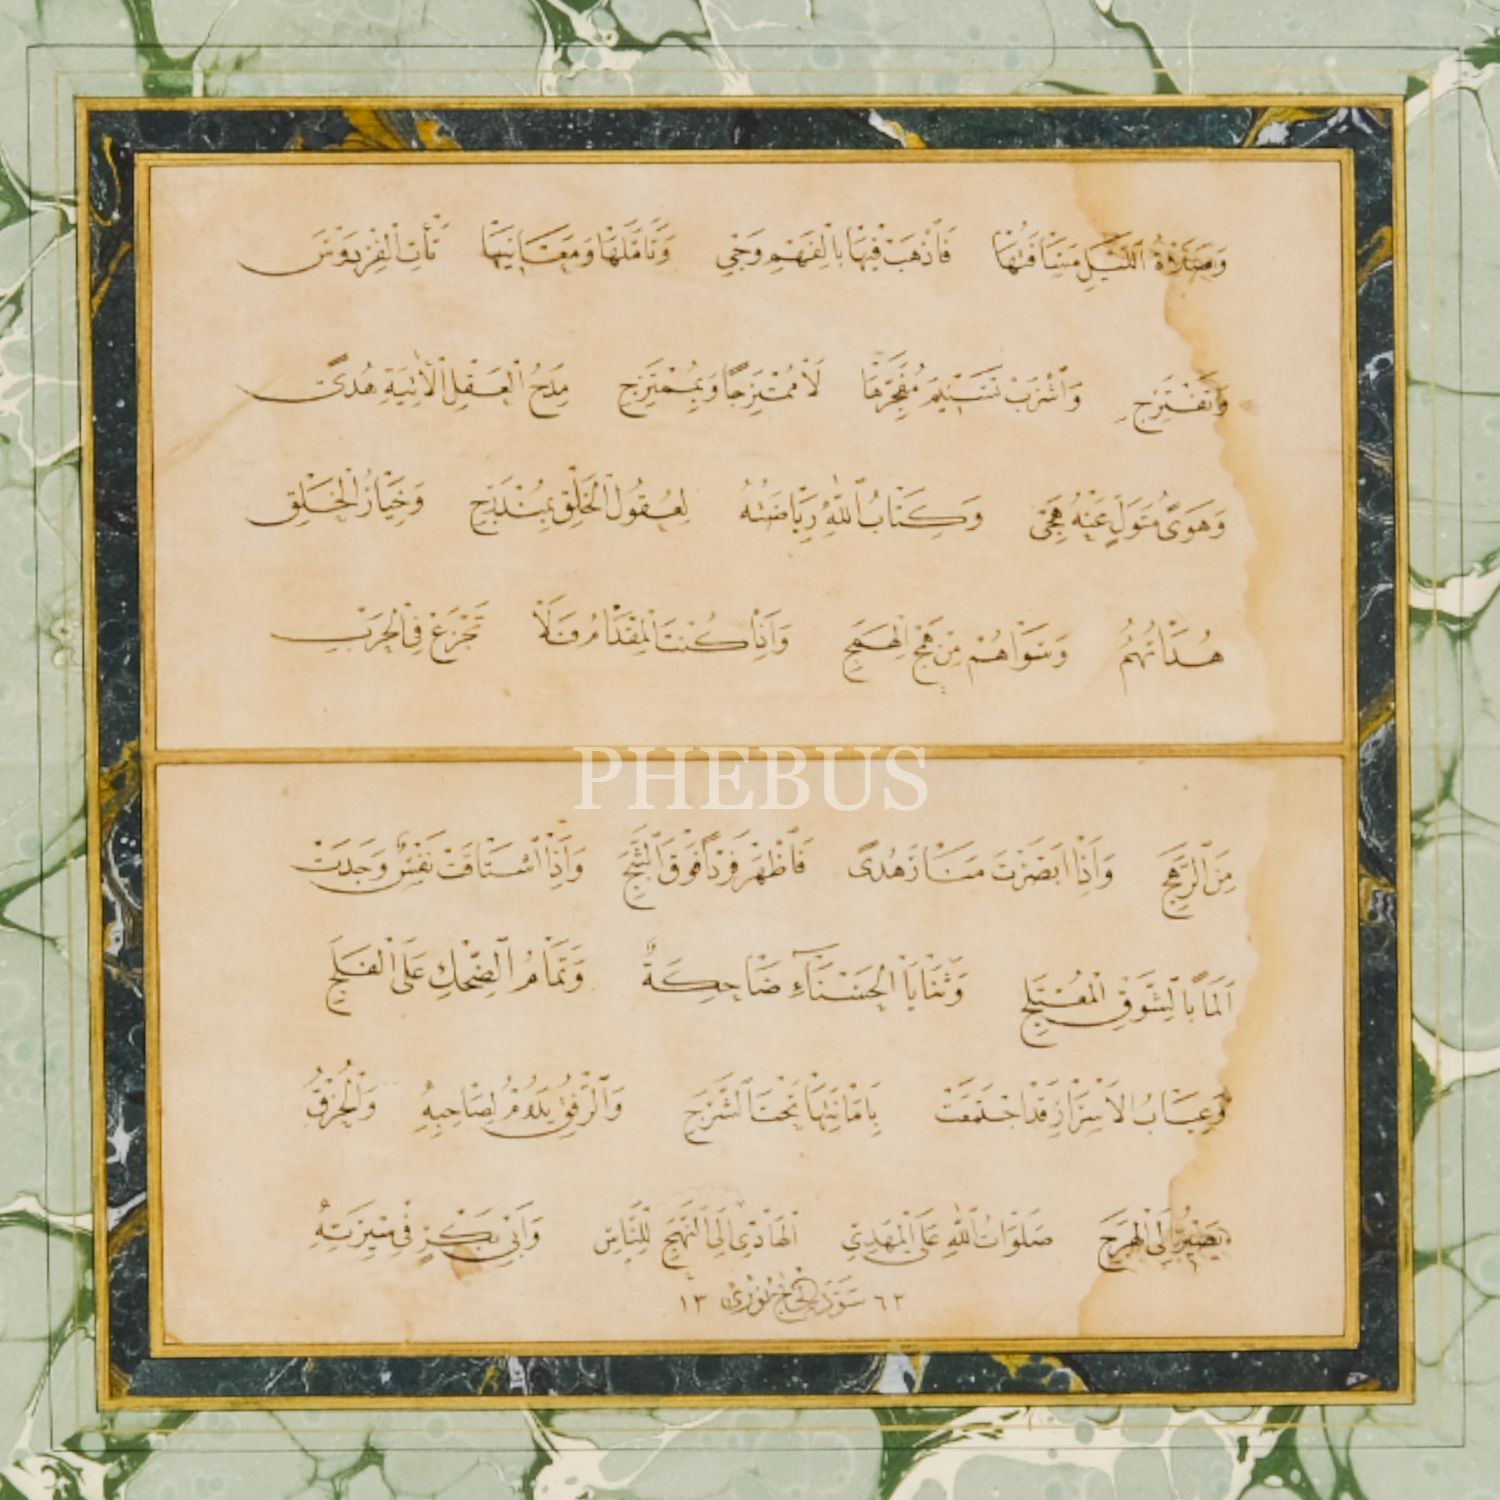 وَصَلَاةُ اللَّيْلِ مَسَافَتُهَا فَاذْهَبْ فِيهَا بِالْفَهْمِ وَجِي وَتَأَمَّلْهَا وَمَعَانِيَهَا تَأْتِ الْفِرْدَوْسَ
وَتَفْتَرِجِ وَاشْرَبْ تَسْنِيمَ مُفَجَّرِهَا لَا مُمْتَزِجًا وَبِمُمْتَزِجِ مَدْحُ الْعَقْلِ الْآتِيهِ هُدًى
وَهَوًى مُتَوَلٍّ عَنْهُ هُجِي وَكِتَابُ اللهِ رِيَاضَتُهُ لِعُقُولِ الْخَلْقِ بِمُنْدَرِجِ وَخِيَارُ الْخَلْقِ
هُدَاتُهُمُ وَسِوَاهُمْ مِنْ هَمَجِ الْهَمَجِ وَإِذَا كُنْتَ الْمِقْدَامَ فَلَا تَجْزَعْ فِي الْحَرْبِ
PHEBUS
مِنَ الرَّهَجِ وَإِذَا أَبْصَرْتَ مَنَارَ هُدًى فَاظْهَرْ فَرْدًا فَوْقَ الثَّبَجِ وَإِذَا اشْتَاقَتْ نَفْسٌ وَجَدَتْ
أَلَمًا بِالشَّوْقِ الْمُعْتَلِجِ وَثَنَايَا الْحَسْنَاءِ ضَاحِكَةٌ وَتَمَامُ الضِّحْكِ عَلَى الْفَلَجِ
وَعِيَابُ الْأَسْرَارِ قَدِ اجْتَمَعَتْ بِأَمَانَتِهَا تَحْتَ الشَّرَجِ وَالرِّفْقُ يَدُومُ لِصَاحِبِهِ وَالْخُرْقُ
يَصِيرُ إِلَى الْهَرَجِ صَلَوَاتُ اللهِ عَلَى الْمَهْدِي الْهَادِي إِلَى النَّهْجِ لِلنَّاسِ وَأَبِي بَكْرٍ فِي سِيرَتِهِ
٦٣ سَوَّدَهُ الْحَاجّ نُورِي ١٣